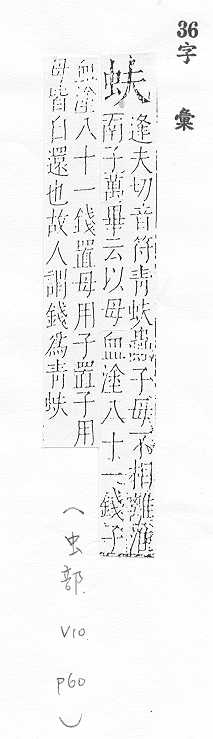 36
字彙
蚨
逢夫切音符青蚨蟲子母不相離淮
南子萬畢云以母血塗八十一錢子
血塗八十一錢置母用子置子用
母皆自還也故人謂錢為青蚨
(虫部
V10
P60)